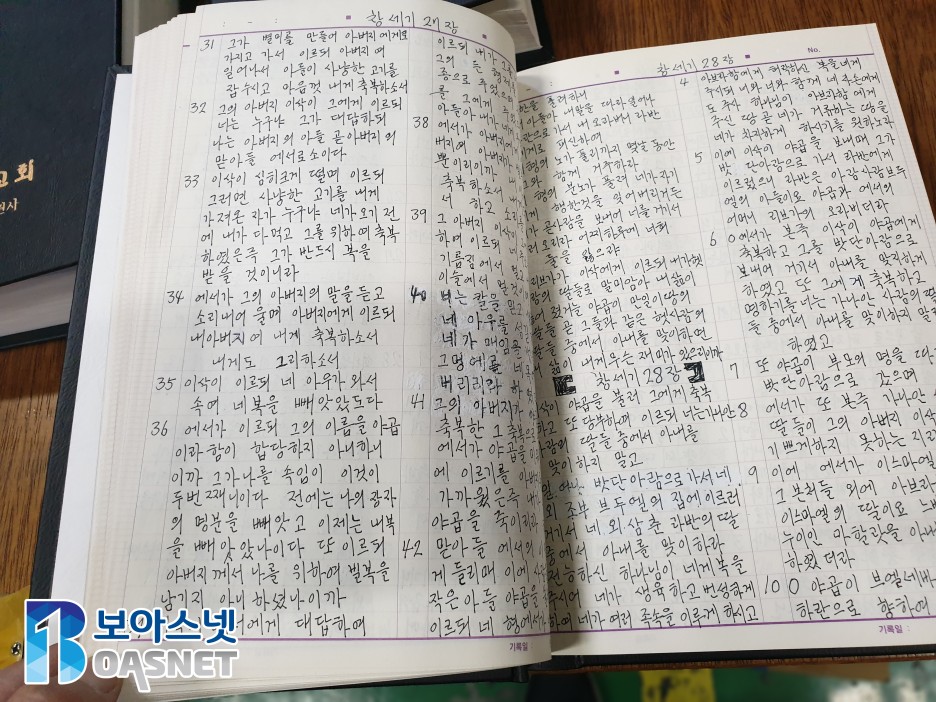 창세기 27장
31 그가 별미를 만들어 아버지에게로
가지고 가서 이르되 아버지여
일어나서 아들이 사냥한 고기를
잡수시고 마음껏 내게 축복하소서
32 그의 아버지 이삭이 그에게 이르되
너는 누구냐 그가 대답하되
나는 아버지의 아들 곧 아버지의
맏아들 에서로소이다
33 이삭이 심히크게 떨며 이르되
그러면 사냥한 고기를 내게
가져온 자가 누구냐 네가 오기 전
에 내가 다 먹고 그를 위하여 축복
하였은즉 그가 반드시 복을
받을 것이니라
34 에서가 그의 아버지의 말을 듣고
소리내어 울며 아버지에게 이르되
내아버지여 내게 축복하소서
내게도 그리하소서
35 이삭이 이르되 네 아우가 와서
속여 네 복을 빼앗았도다
36 에서가 이르되 그의 이름을 야곱
이라 함이 합당하지 아니하니
이까 그가 나를 속임이 이것이
두번째니이다 전에는 나의 장자
의 명분을 빼앗고 이제는 내 복
을 빼앗았나이다 또 이르되
아버지께서 나를 위하여 빌 복을
남기지 아니하셨나이까
에게 대답하여
이르되 내가 그
그의 들 형
종으로 주었으며
를 그에게
아들아 내가 네게
38 에서가 아버지에
버지여 아버지
뿐이리이까
축복하소서
서 하고 소리
39 그 아버지
하여 이르되
기름짐에서
이슬에서 멀
40 너는 칼을 믿고
네 아우를
네가 매임을
그 멍에를 네
버리리라 하
41 그의 아버지가
축복한 그 축복
에서가 야곱을
에 이르기를 아버
가까웠은즉 내
야곱을 죽이리라
42 맏아들 에서의
게 들리매 이에
작은 아들 야곱을
이르되 네 형에서
기록일
창세기 28장
No.
노가 풀리기까지 몇날 동안
거주하라
형의 분노가 풀려 네가 자기
행한것을 잊어버리거든
사람을 보내어 너를 거기서
오리라 어찌 하루에 너희
둘을 잃으랴
이삭에게 이르되 내가 헷
딸들로 말미암아 내 삶이
야곱이 만일 이 땅의
딸들 곧 그들과 같은 헷 사람의
중에서 아내를 맞이하면
내게 무슨 재미가 있으리이까
창세기 28장
야곱을 불러 그에게 축복
또 당부하여 이르되 너는 가나안
딸들 중에서 아내를
맞이하지 말고
밧단아람으로 가서 네
외조부 브두엘의 집에 이르러
거기서 네 외삼촌 라반의 딸
중에서 아내를 맞이하라
전능하신 하나님이 네게 복을
주시어 네가 생육하고 번성하게
하여 네가 여러 족속을 이루게 하시고
4 아브라함에게 허락하신 복을 네게
주시되 너와 너와 함께 네 자손에게
도 주사 하나님이 아브라함에게
주신 땅 곧 네가 거류하는 땅을
네가 차지하게 하시기를 원하노라
5 이에 이삭이 야곱을 보내매 그가
밧단아람으로 가서 라반에게
이르렀으니 라반은 아람사람 브두
엘의 아들이요 야곱과 에서의
어머니 리브가의 오라비더라
6 0 에서가 본즉 이삭이 야곱에게
축복하고 그를 밧단아람으로
보내어 거기서 아내를 맞이하게
하였고 또 그에게 축복하고
명하기를 너는 가나안 사람의 딸
들 중에서 아내를 맞이하지 말라
하였고
7 또 야곱이 부모의 명을 따
밧단아람으로 갔으며
8 에서가 또 본즉 가나안
딸들이 그의 아버지 이삭
기쁘게하지 못하는지라
9 이에 에서가 이스마엘
그 본처들 외에 아브라
이스마엘의 딸이요 느바
누이인 마할랏을 아내
하였더라
10 0 야곱이 브엘세바
하란으로 향하여
기록일
보아스넷
BOASNET